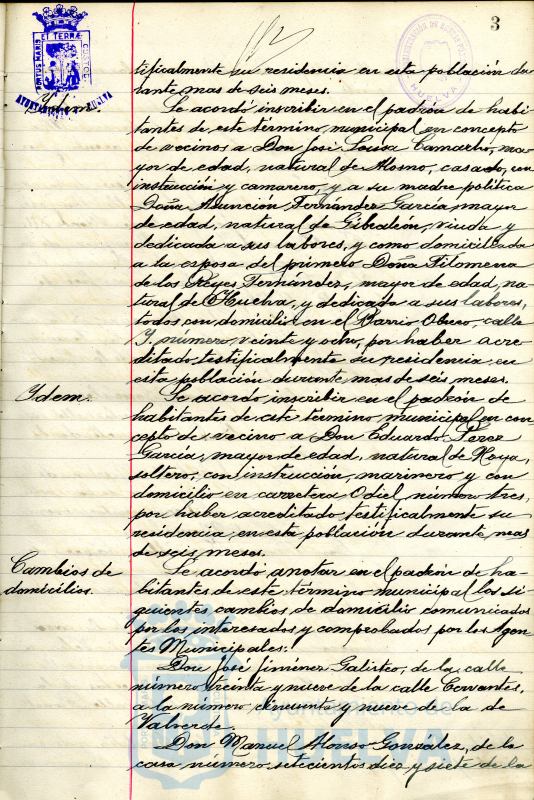 3
tificalmente su residencia en esta población du-
rante mas de seis meses.
Ydem.
Se acordó inscribir en el padrón de habi-
tantes de este término municipal en concepto
de vecinos a Don José Sousa Camacho, ma-
yor de edad, natural de Alosno, casado, con
instrucción y camarero, y a su madre política
Doña Asunción Fernández García, mayor
de edad, natural de Gibraleón, viuda y
dedicada a sus labores, y como domiciliada
a la esposa del primero Doña Filomena
de los Reyes Fernández, mayor de edad, na-
tural de Huelva, y dedicada a sus labores,
todos con domicilio en el Barrio Obrero, calle
Y, número veinte y ocho, por haber acre-
ditado testificalmente su residencia en
esta población durante mas de seis meses.
Ydem.
Se acordó inscribir en el padrón de
habitantes de este término municipal en con-
cepto de vecino a Don Eduardo Perez
García, mayor de edad, natural de Moya,
soltero, con instrucción, marinero y con
domicilio en carretera Odiel, número tres,
por haber acreditado testificalmente su
residencia en esta población durante mas
de seis meses.
Cambios de
domicilios.
Se acordó anotar en el padrón de ha-
bitantes de este término municipal los si-
guientes cambios de domicilio comunicados
por los interesados y comprobados por los Agen-
tes Municipales:
Don José Jiménez Galisteo, de la calle
número treinta y nueve de la calle Cervantes,
a la número cincuenta y nueve de la de
Valverde.
Don Manuel Alonso González, de la
casa número setecientos diez y siete de la
PORTUS MARIS ET TERRAE CUSTODIA
AYUNTAMIENTO HUELVA
HUELVA
Ayuntamiento de
HUELVA